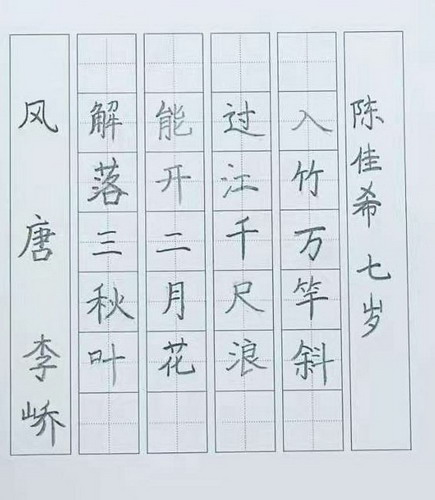 风 唐 李峤
解落三秋叶
能开二月花
过江千尺浪
入竹万竿斜
陈佳希 七岁